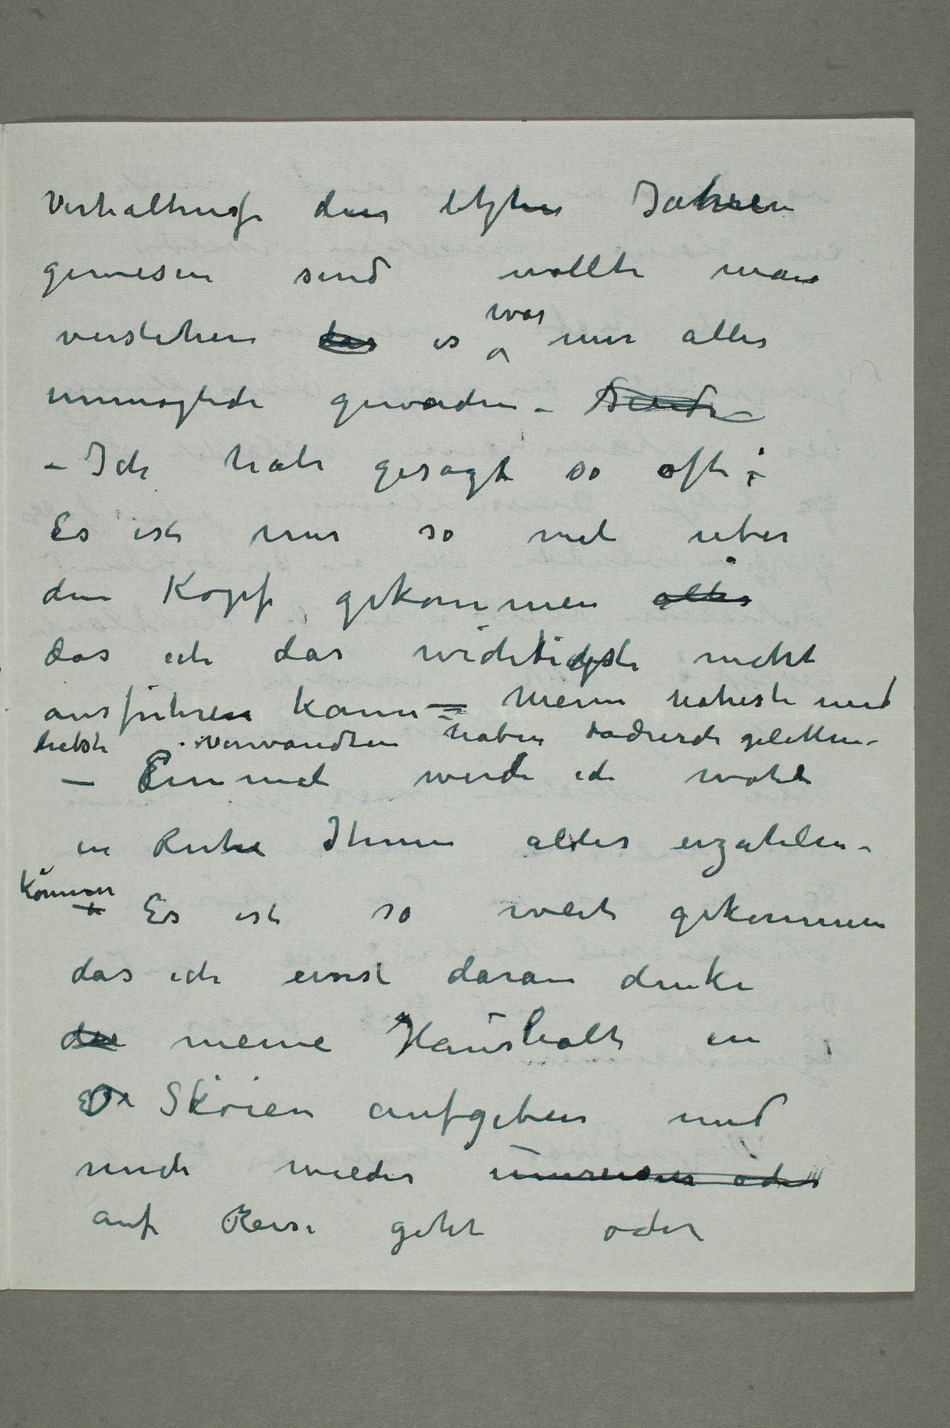 Verhaltnisse den letzten Jahren
gewesen sind wollte man
verstehen das es war mir alles
unmöglich geworden – Sende –
– Ich habe gesagt so oft:
Es ist mir so viel uber
den Kopf gekommen alles
das ich das wichtigste nicht
ausführen kann – Meine naheste und
liebste Verwandten haben dadurch gelitten –
– Einmal werde ich wohl
in Ruhe Ihnen alles erzahlen –
können – Es ist so weit gekommen
das ich ernst daran denke
die meine Haushalt in
Skøien aufgeben und
mich wieder umreisen oder
auf Reise geht oder